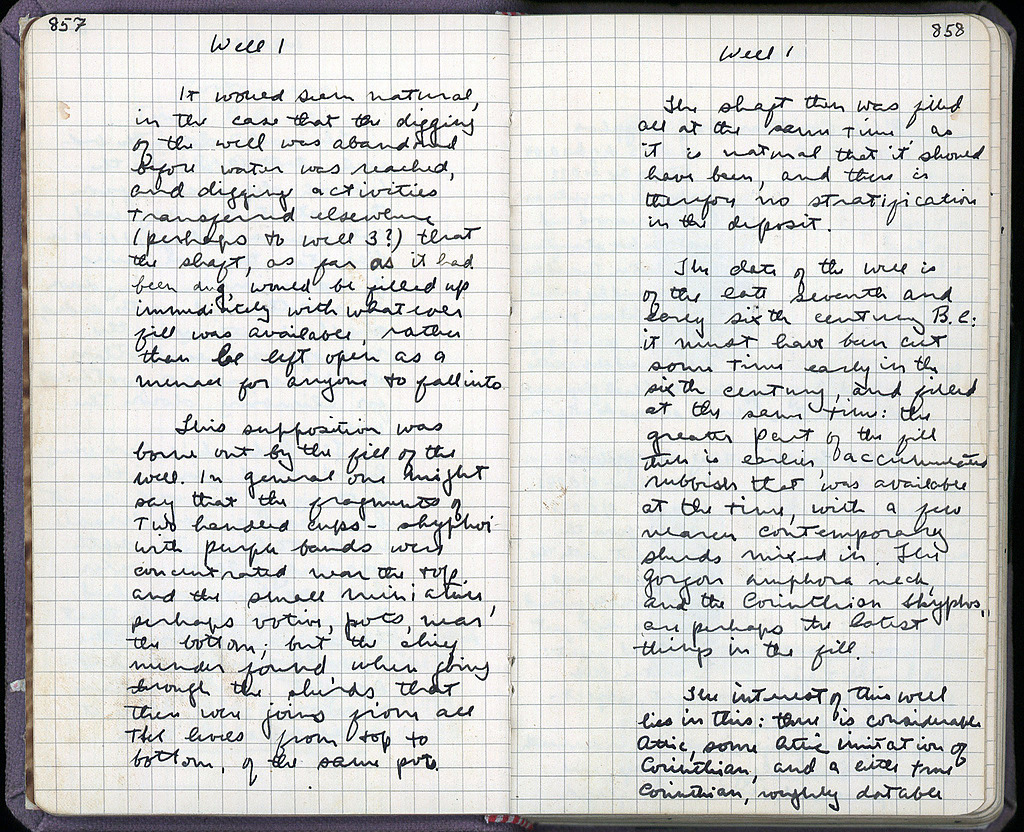 857
Well 1
It would seem natural,
in the case that the digging
of the well was abandoned
before water was reached,
and digging activities
transferred elsewhere
(perhaps to well 3?) that
the shaft, as far as it had
been dug, would be filled up
immediately with whatever
fill was available, rather
than be left open as a
menace for anyone to fall into.
This supposition was
borne out by the fill of the
well. In general one might
say that the fragments of
two handled cups - skyphoi
with purple bands were
concentrated near the top.
and the small miniature,
perhaps votive, pots, near
the bottom; but the
found when going
through the sherds that
there were joins from all
the levels from top to
bottom, of the same pots.
858
Well 1
The shaft then was filled
all at the same time, as
it is natural that it should
have been, and there is
therefore no stratification
in the deposit.
The date of the well is
of the late seventh and
early sixth century B.C.:
it must have been cut
some time early in the
sixth century, and filled
at the same time: the
greater part of the fill
then is earlier, accumulated
rubbish that was available
at the time, with a few
nearer contemporary
sherds mixed in. The
Gorgon amphora neck,
and the Corinthian skyphos,
are perhaps the latest
things in the fill.
The interest of this well
lies in this: there is considerable
Attic, some Attic imitation of
Corinthian, and a little true
Corinthian, roughly datable